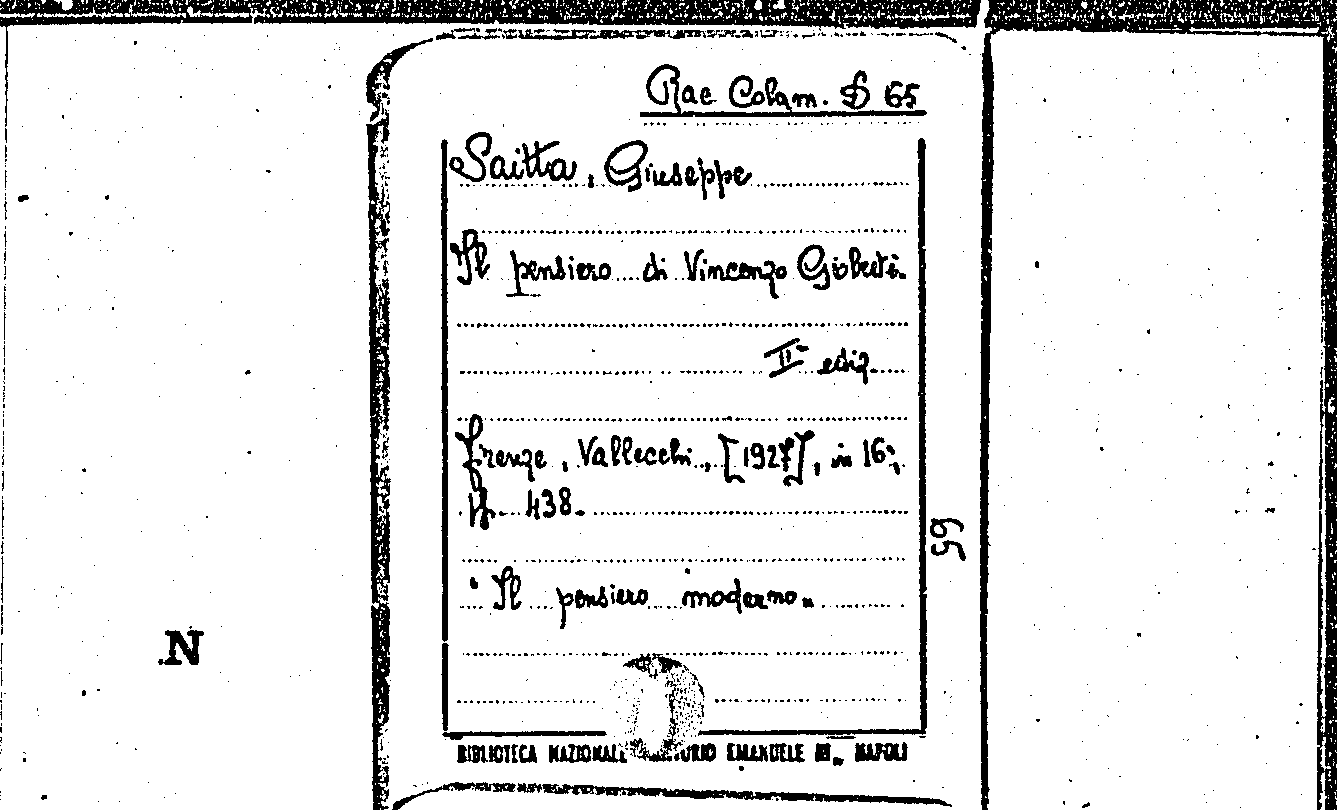 Rac Colam. D 65
Saitta, Giuseppe
Il pensiero di Vincenzo Gioberti.
IIª ediz.
Firenze, Vallecchi, [1927], in 16°,
pp. 438.
65
"Il pensiero moderno"
N
BIBLIOTECA NAZIONALE VITTORIO EMANUELE III„ NAPOLI